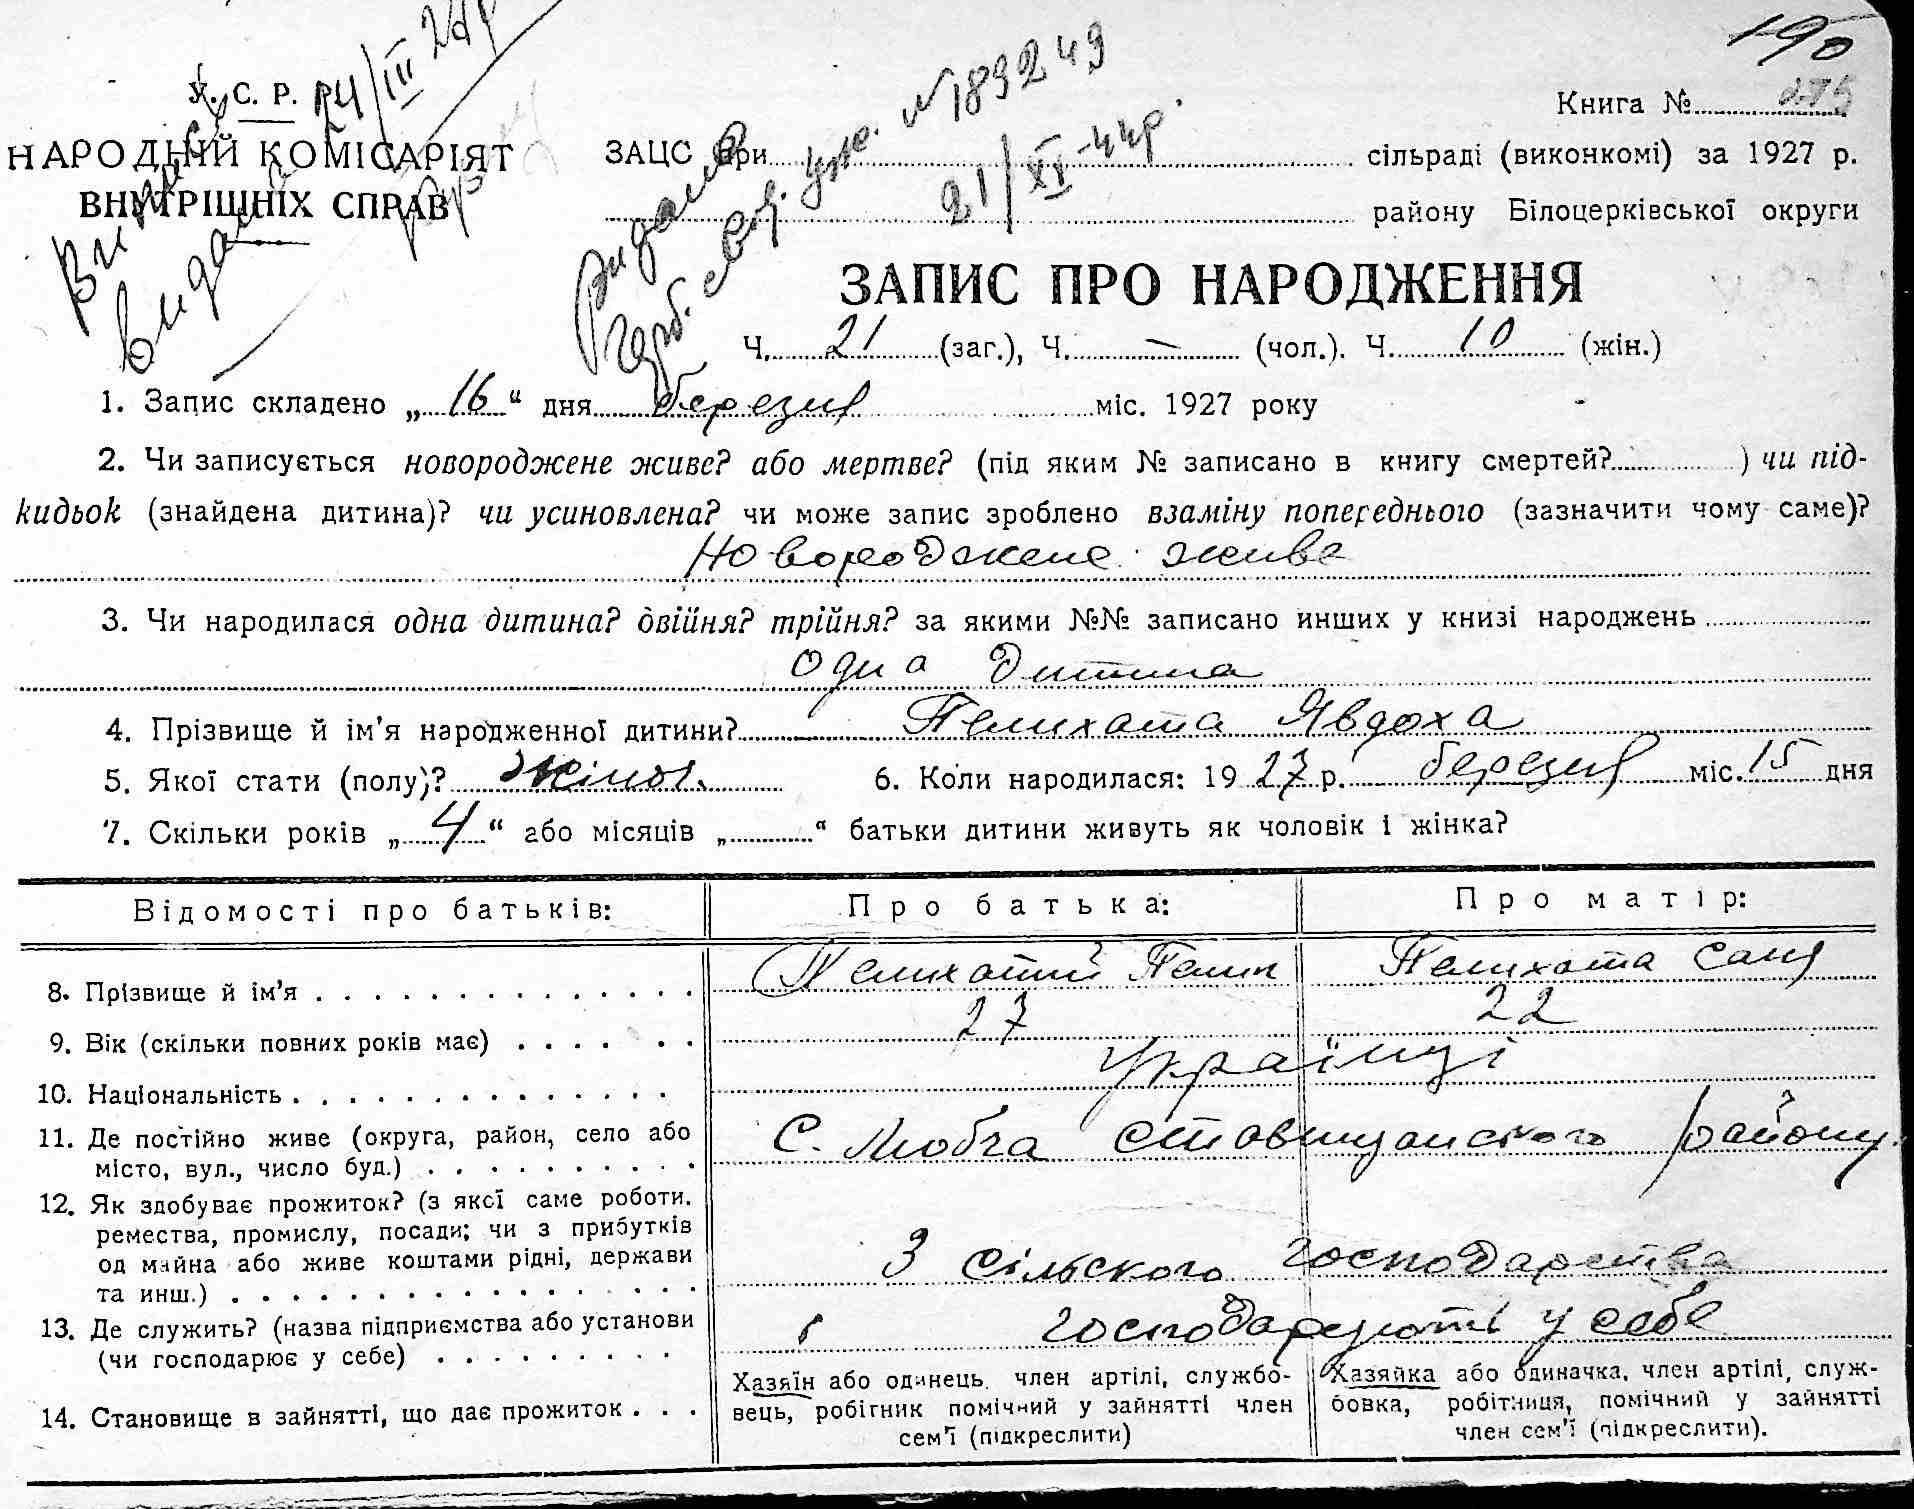 190
У. С. Р.
Книга №
НАРОДНІЙ КОМІСАРІЯТ
ВНУТРІШНІХ СПРАВ
Виписку
видано 24/III
Видано
герб. свід. №183249
21/XI-44р.
ЗАЦС при сільраді (виконкомі) за 1927 р.
району Білоцерківської округи
ЗАПИС ПРО НАРОДЖЕННЯ
Ч. 21 (заг.), Ч. — (чол.). Ч. 10 (жін.)
1. Запис складено „ 16 “ дня березня міс. 1927 року
2. Чи записується новороджене живе? або мертве? (під яким № записано в книгу смертей? ) чи під-
кидьок (знайдена дитина)? чи усиновлена? чи може запис зроблено взаміну попереднього (зазначити чому саме)?
Новороджене живе
3. Чи народилася одна дитина? двійня? трійня? за якими №№ записано инших у книзі народжень
одна дитина
4. Прізвище й ім’я народженної дитини? Пелихата Явдоха
5. Якої стати (полу)? жіноч. 6. Коли народилася: 19 27 р. березня міс. 15 дня
7. Скільки років „ 4 “ або місяців „ “ батьки дитини живуть як чоловік і жінка?
Відомості про батьків: Про батька: Про матір:
8. Прізвище й ім’я Пелихатий Пелихата Саня
9. Вік (скільки повних років має) 27 22
10. Національність Українці
11. Де постійно живе (округа, район, село або
місто, вул., число буд.) С. Любча Ставищанського району
12. Як здобуває прожиток? (з якої саме роботи,
ремества, промислу, посади; чи з прибутків
од майна або живе коштами рідні, держави
та инш.) З сільського господарства
13. Де служить? (назва підприємства або установи
(чи господарює у себе) господарюють у себе
14. Становище в зайнятті, що дає прожиток
Хазяїн або одинець, член артілі, службо-
вець, робітник помічний у зайнятті член
сем’ї (підкреслити)
Хазяйка або одиначка, член артілі, служ-
бовка, робітниця, помічний у зайнятті
член сем’ї (підкреслити).